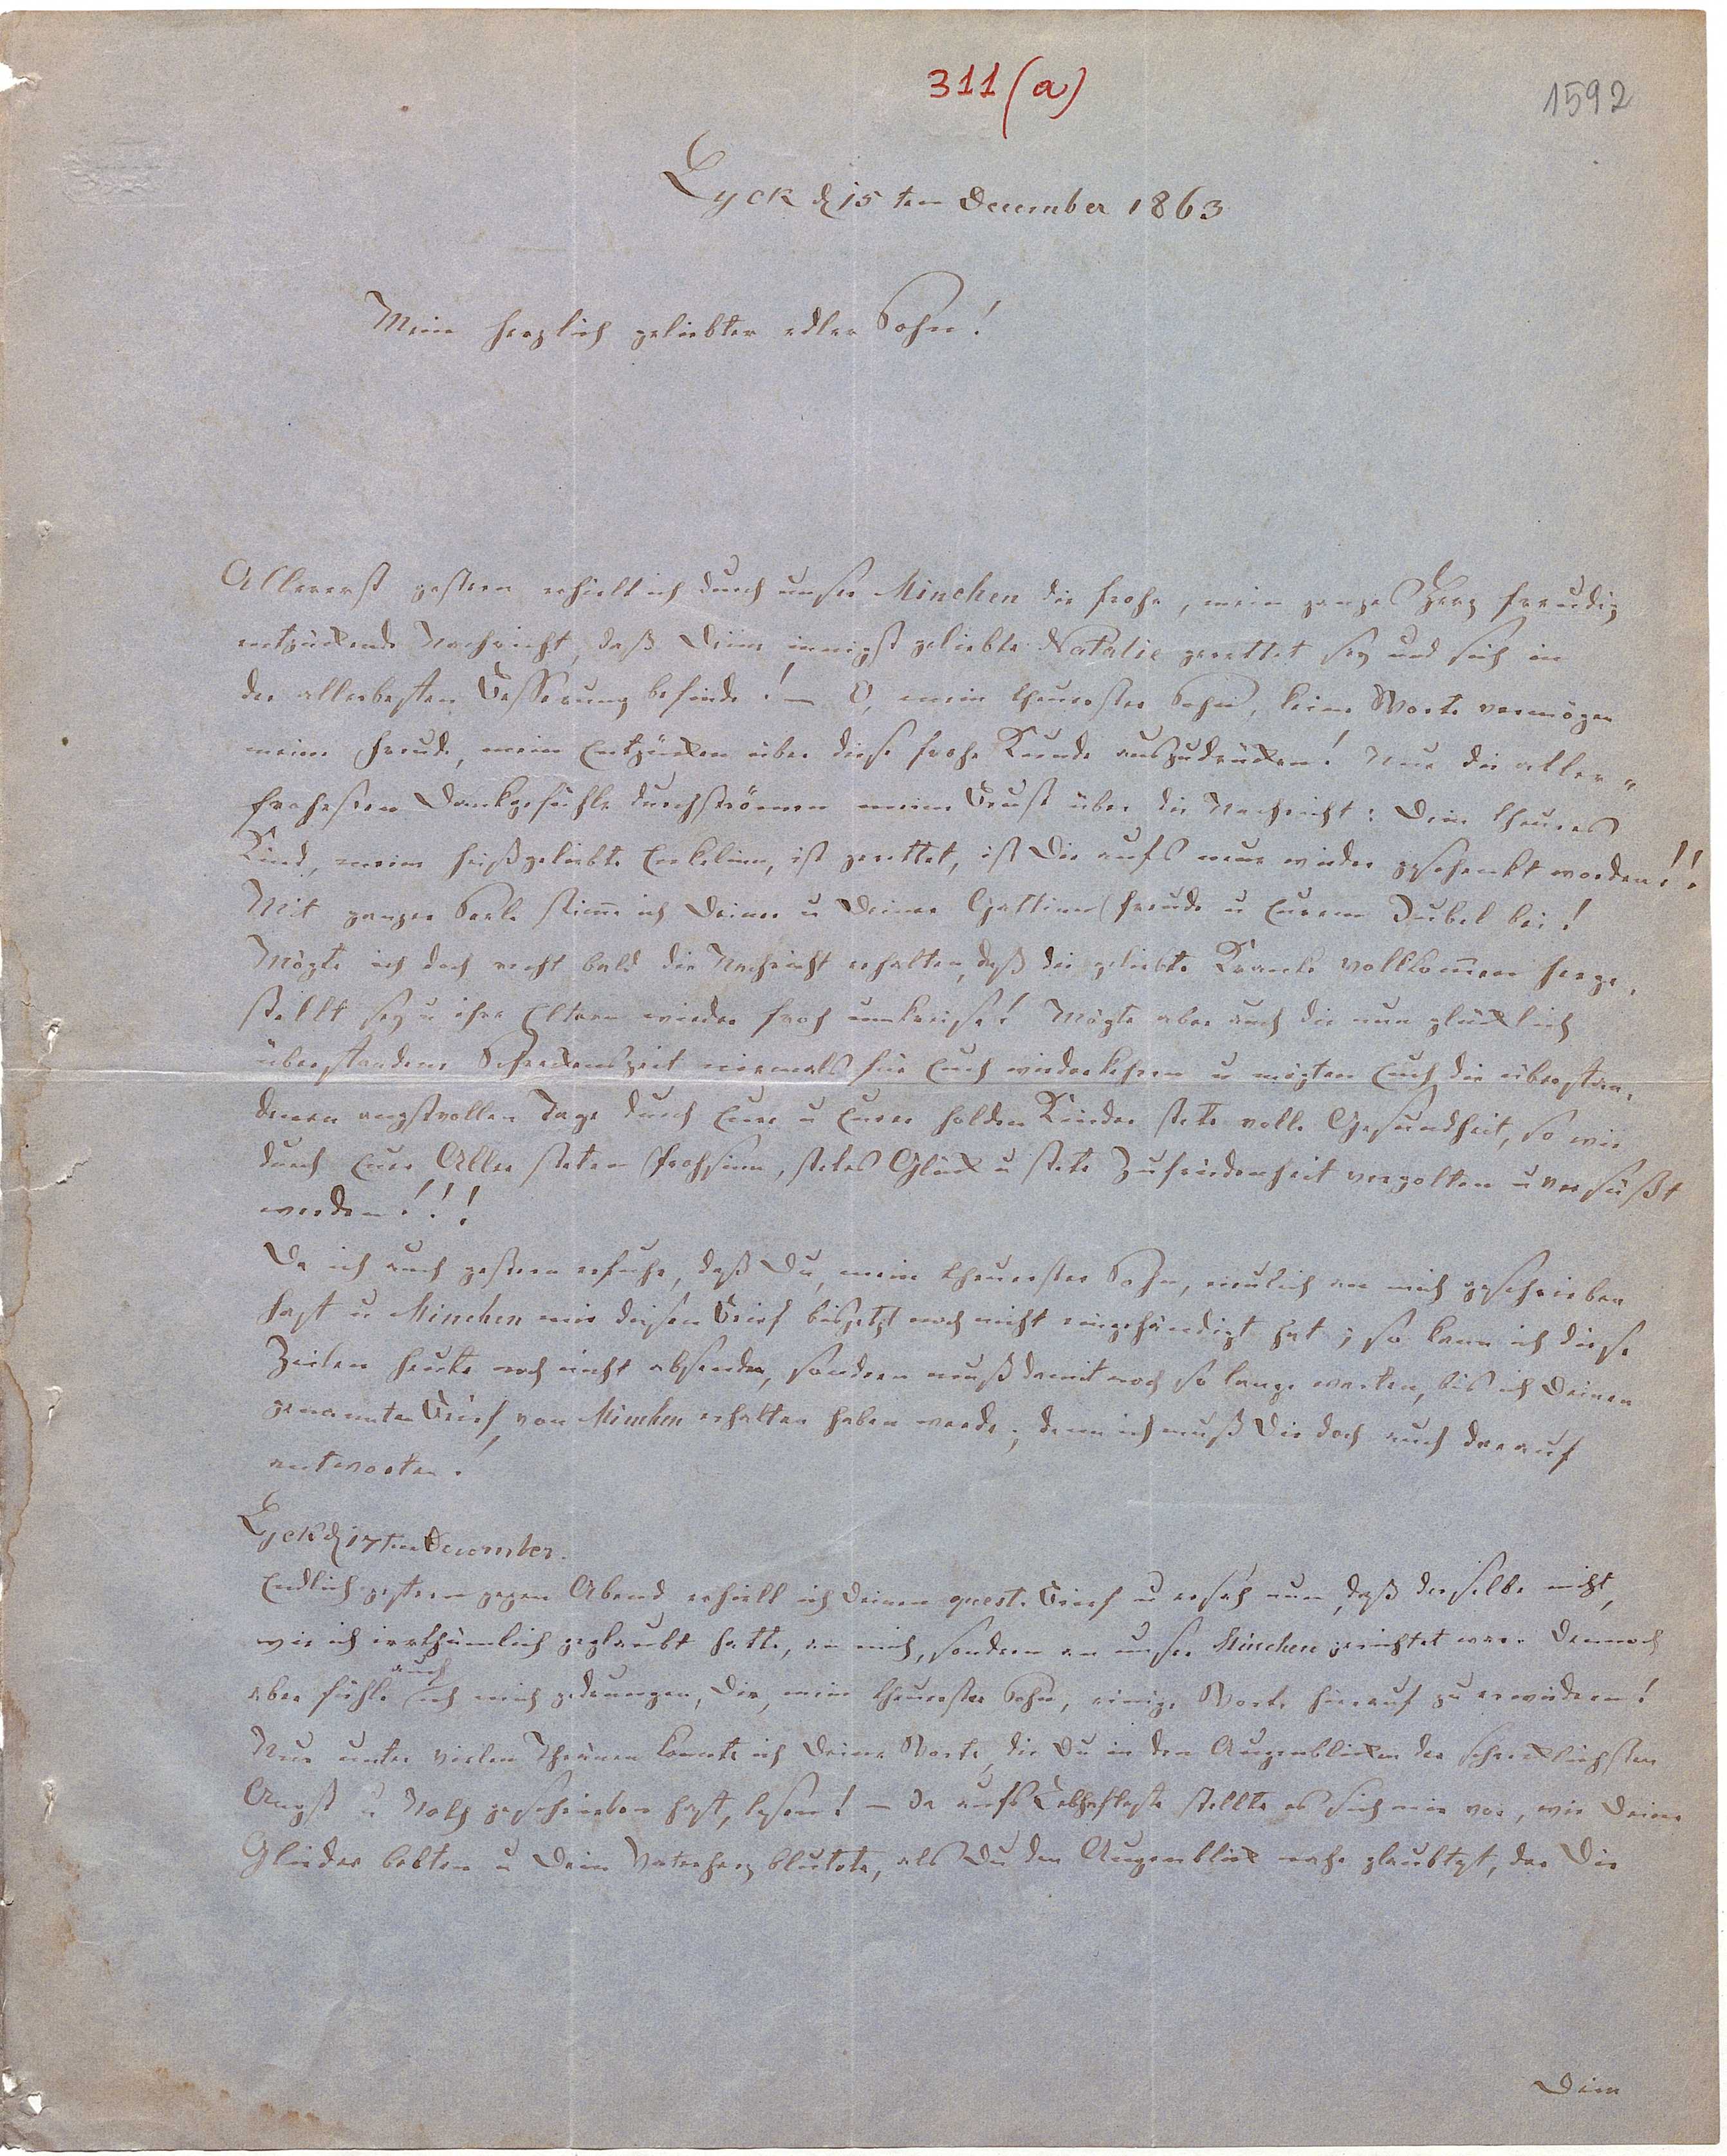 311 (a)
1592
Lyck d 15ten December 1863
Mein herzlich geliebter edler Sohn!
Allererst gestern erhielt ich durch unser Minchen die frohe, mein ganzes Herz freudig
entzückende Nachricht, daß Deine innigst geliebte Natalie gerettet sey und sich in
der allerbesten Besserung befinde! – O, mein theuerster Sohn, keine Worte vermögen
meine Freude, mein Entzücken über diese frohe Kunde auszudrücken! Nur die aller-
frohesten Dankgefühle durchströmen meine Brust über die Nachricht: Dein theures
Kind, meine heißgeliebte Enkelinn, ist gerettet, ist Dir aufs neue wieder geschenkt worden!!
Mit ganzer Seele stime ich Deiner u Deiner Gattinn Freude u Eurem Jubel bei!
Mögte ich doch recht bald die Nachricht erhalten, daß die geliebte Kranke vollkomen herge-
stellt sey u ihre Eltern wieder froh umkreise! Mögte aber auch die nun glücklich
überstandene Schreckenszeit niemals für Euch wiederkehren u mögten Euch die überstan-
denen angstvollen Tage durch Eure u Eurer holden Kinder stete volle Gesundheit, so wie
durch Euer Aller steten Frohsinn, stetes Glück u stete Zufriedenheit vergolten u versüßt
werden!!!
Da ich auch gestern erfuhr, daß Du, mein theuerster Sohn, neulich an mich geschrieben
hast u Minchen mir diesen Brief bisjetzt noch nicht eingehändigt hat; so kann ich diese
Zeilen heute noch nicht absenden, sondern muß damit noch so lange warten, bis ich Deinen
genannten Brief von Minchen erhalten haben werde; denn ich muß Dir doch auch darauf
antworten.
Lyck d 17ten December.
Endlich gestern gegen Abend erhielt ich Deinen quest. Brief u ersah nun, daß derselbe nicht,
wie ich irrthümlich geglaubt hatte, an mich, sondern an unser Minchen gerichtet war. Dennoch
aber fühle auch ich mich gedrungen, Dir, mein theuerster Sohn, einige Worte hierauf zu erwiedern!
Nur unter vielen Thränen konnte ich Deine Worte, die Du in den Augenblicken der schrecklichsten
Angst u Noth geschrieben hast, lesen! – da aufs Lebhafteste stellte es sich mir vor, wie Deine
Glieder bebten u Dein Vaterherz blutete, als Du den Augenblick nahe glaubtest, der Dir
Dein